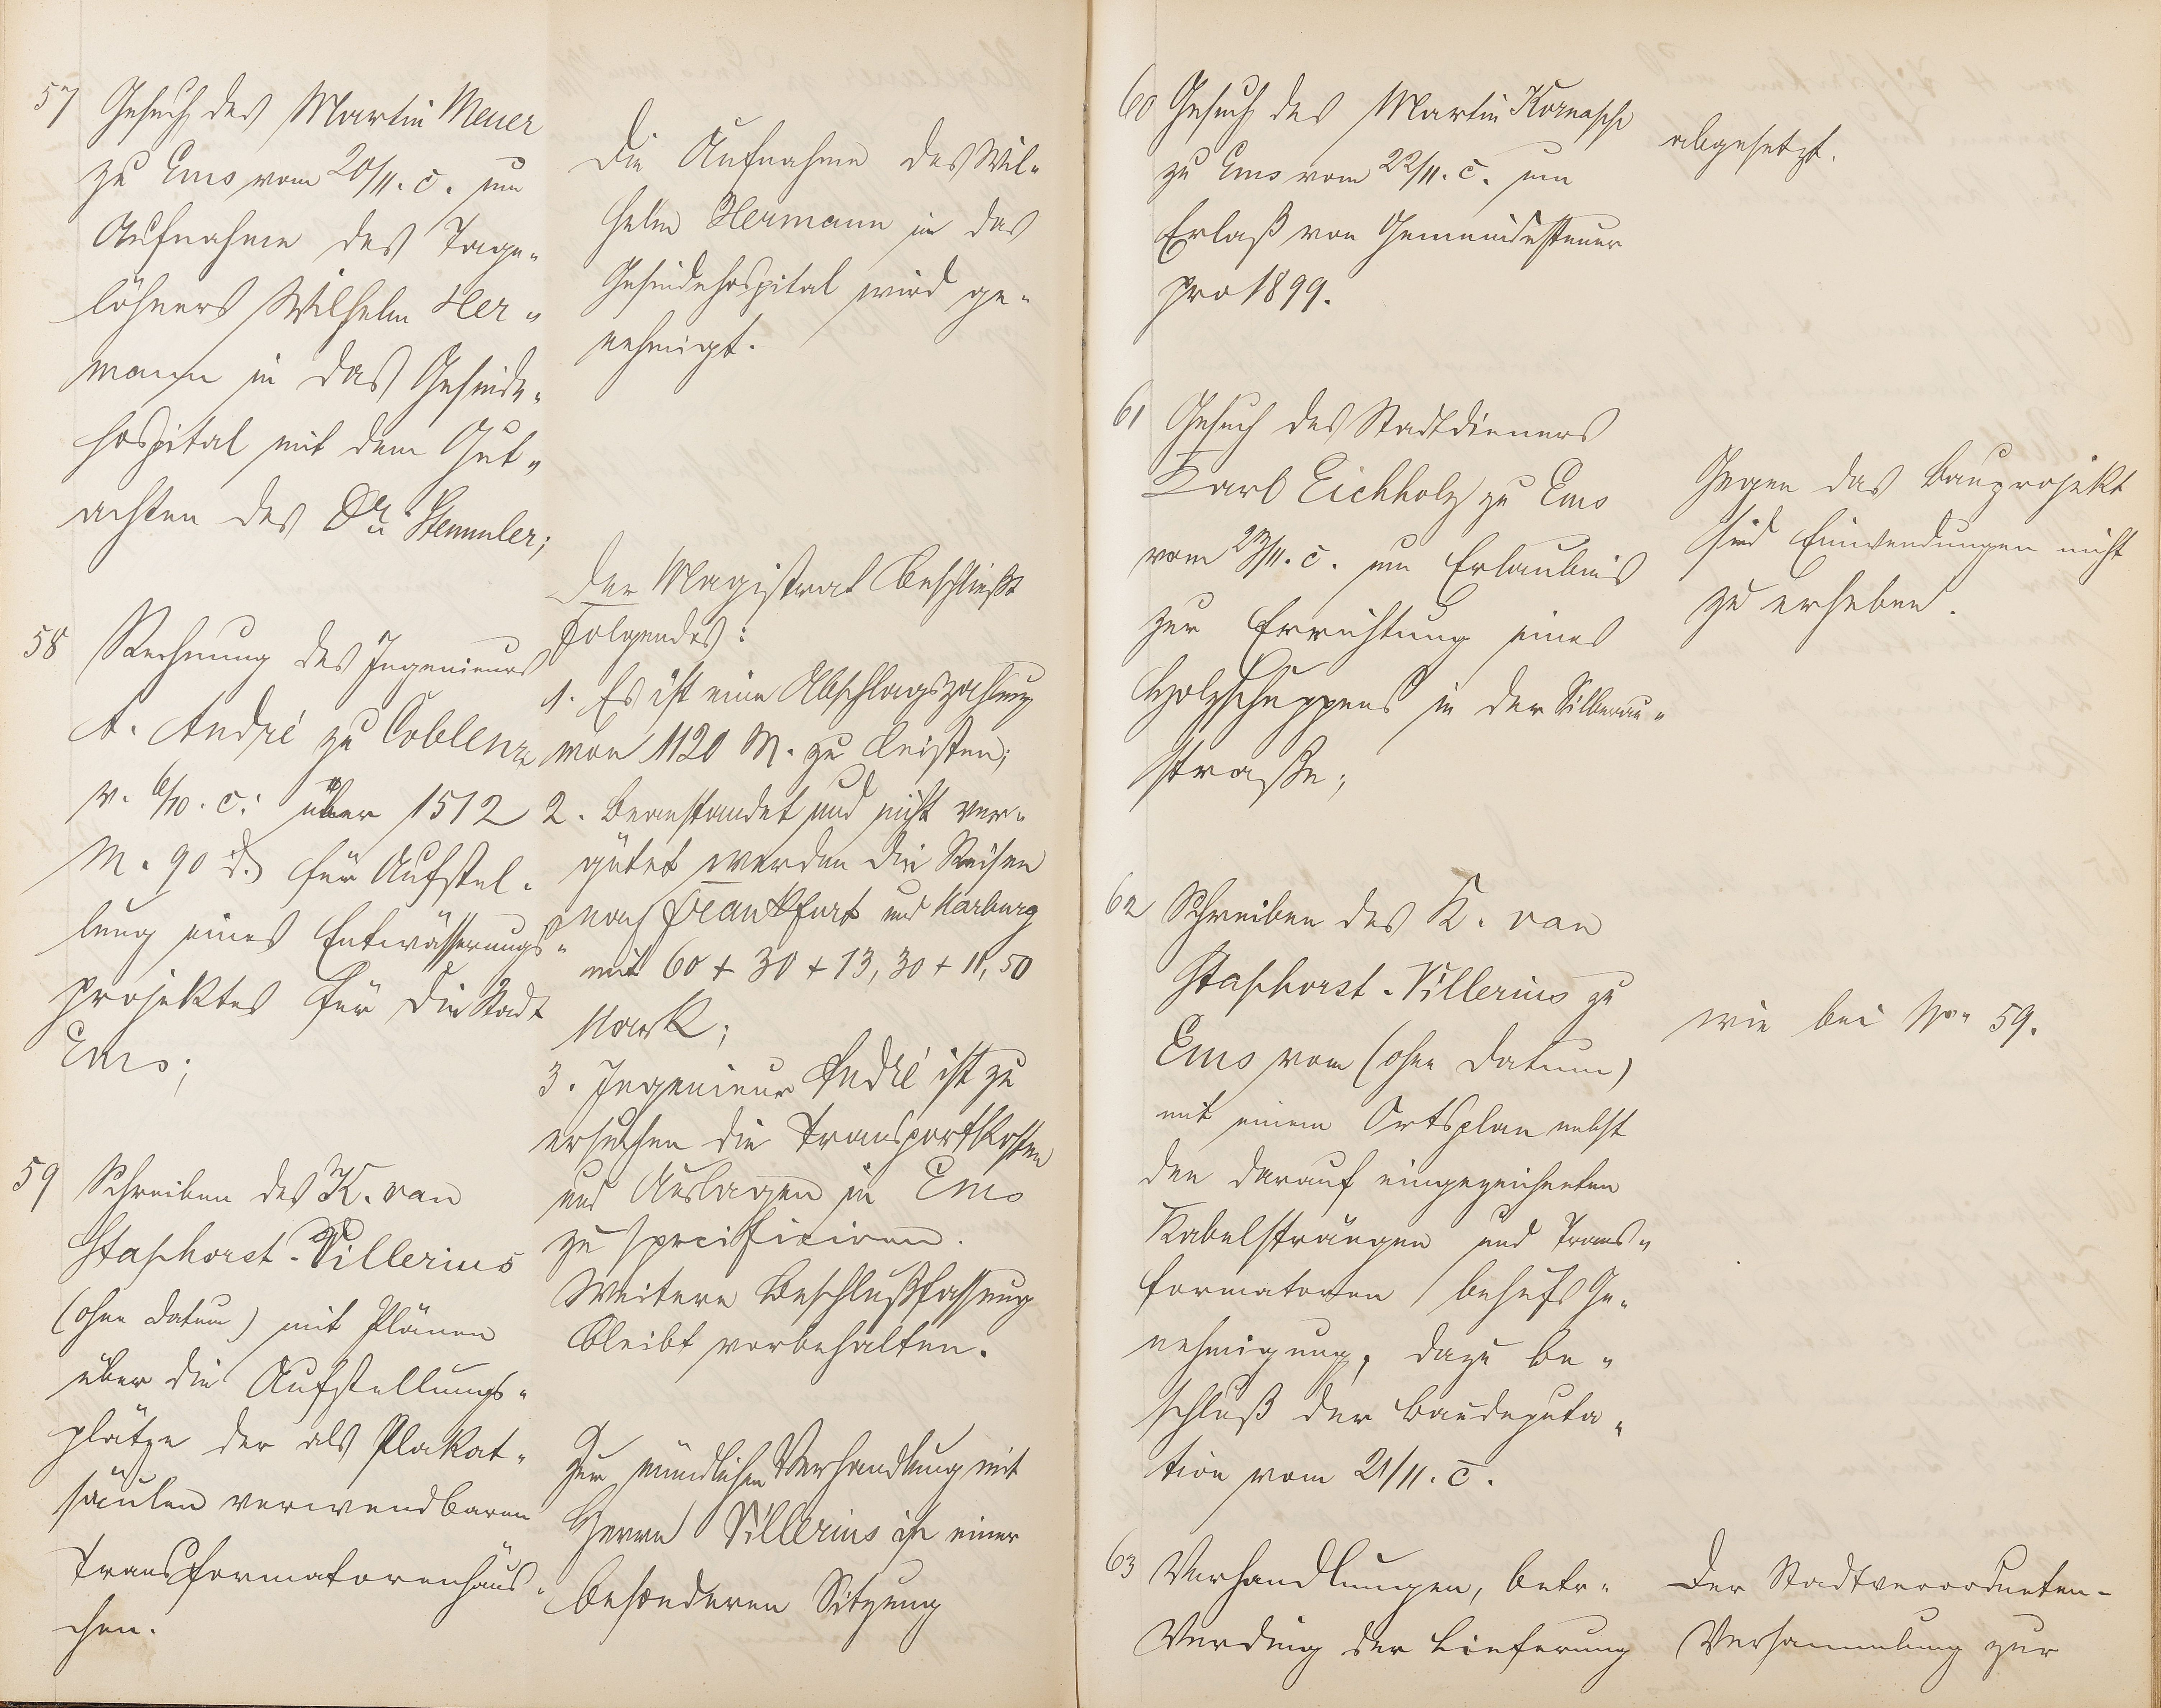 57 Gesuch des Martin Meuer
zu Ems vom 20/11. c. um
Aufnahme des Tage„
löhners Wilhelm Her„
mann in das Gesinde„
hospital mit dem Gut„
achten des Dr. Stemmler;
Die Aufnahme des Wil„
helm Hermann in das
Gesindehospital wird ge„
nehmigt.
58 Rechnung des Ingenieurs
A. André zu Coblenz
v. 6/10. c. über 1512
M. 90 d. für Aufstel„
lung eines Entwässerungs„
projektes für die Stadt
Ems;
Der Magistrat beschließt
Folgendes:
1. Es ist eine Abschlagszahlung
von 1120 M. zu leisten;
2. Beanstandet und nicht ver„
gütet werden die Reisen
nach Frankfurt und Marburg
mit 60 + 30 + 13,30 + 11,50
Mark;
3. Ingenieur André ist zu
ersuchen die Transportkosten
und Auslagen in Ems
zu specificiren.
Weitere Beschlußfassung
bleibt vorbehalten.
59 Schreiben des K. van
Staphorst-Villerius
(ohne Datum) mit Plänen
über die Aufstellungs„
plätze der als Plakat„
säulen verwendbaren
Transformatorenhäus„
chen.
Zur mündlichen Verhandlung mit
Herrn Villerius in einer
besonderen Sitzung
60 Gesuch des Martin
zu Ems vom 22/11. c. um
Erlaß von Gemeindesteuer
pro 1899.
abgesetzt.
61 Gesuch des Stadtdieners
Karl Eichholz zu Ems
vom 23/11. c. um Erlaubnis
zur Errichtung eines
Holzschuppens in der Silberau„
straße;
Gegen das Bauprojekt
sind Einwendungen nicht
zu erheben.
62 Schreiben des K. van
Staphorst-Villerius zu
Ems vom (ohne Datum)
mit einem Ortsplan nebst
den darauf eingezeichneten
Kabelsträngen und Trans„
formatoren behufs Ge„
nehmigung, dazu Be„
schluß der Baudeputa„
tion vom 21/11. c.
wie bei No. 59.
63 Verhandlungen, betr.
Verding der Lieferung
Der Stadtverordneten-
Versammlung zur